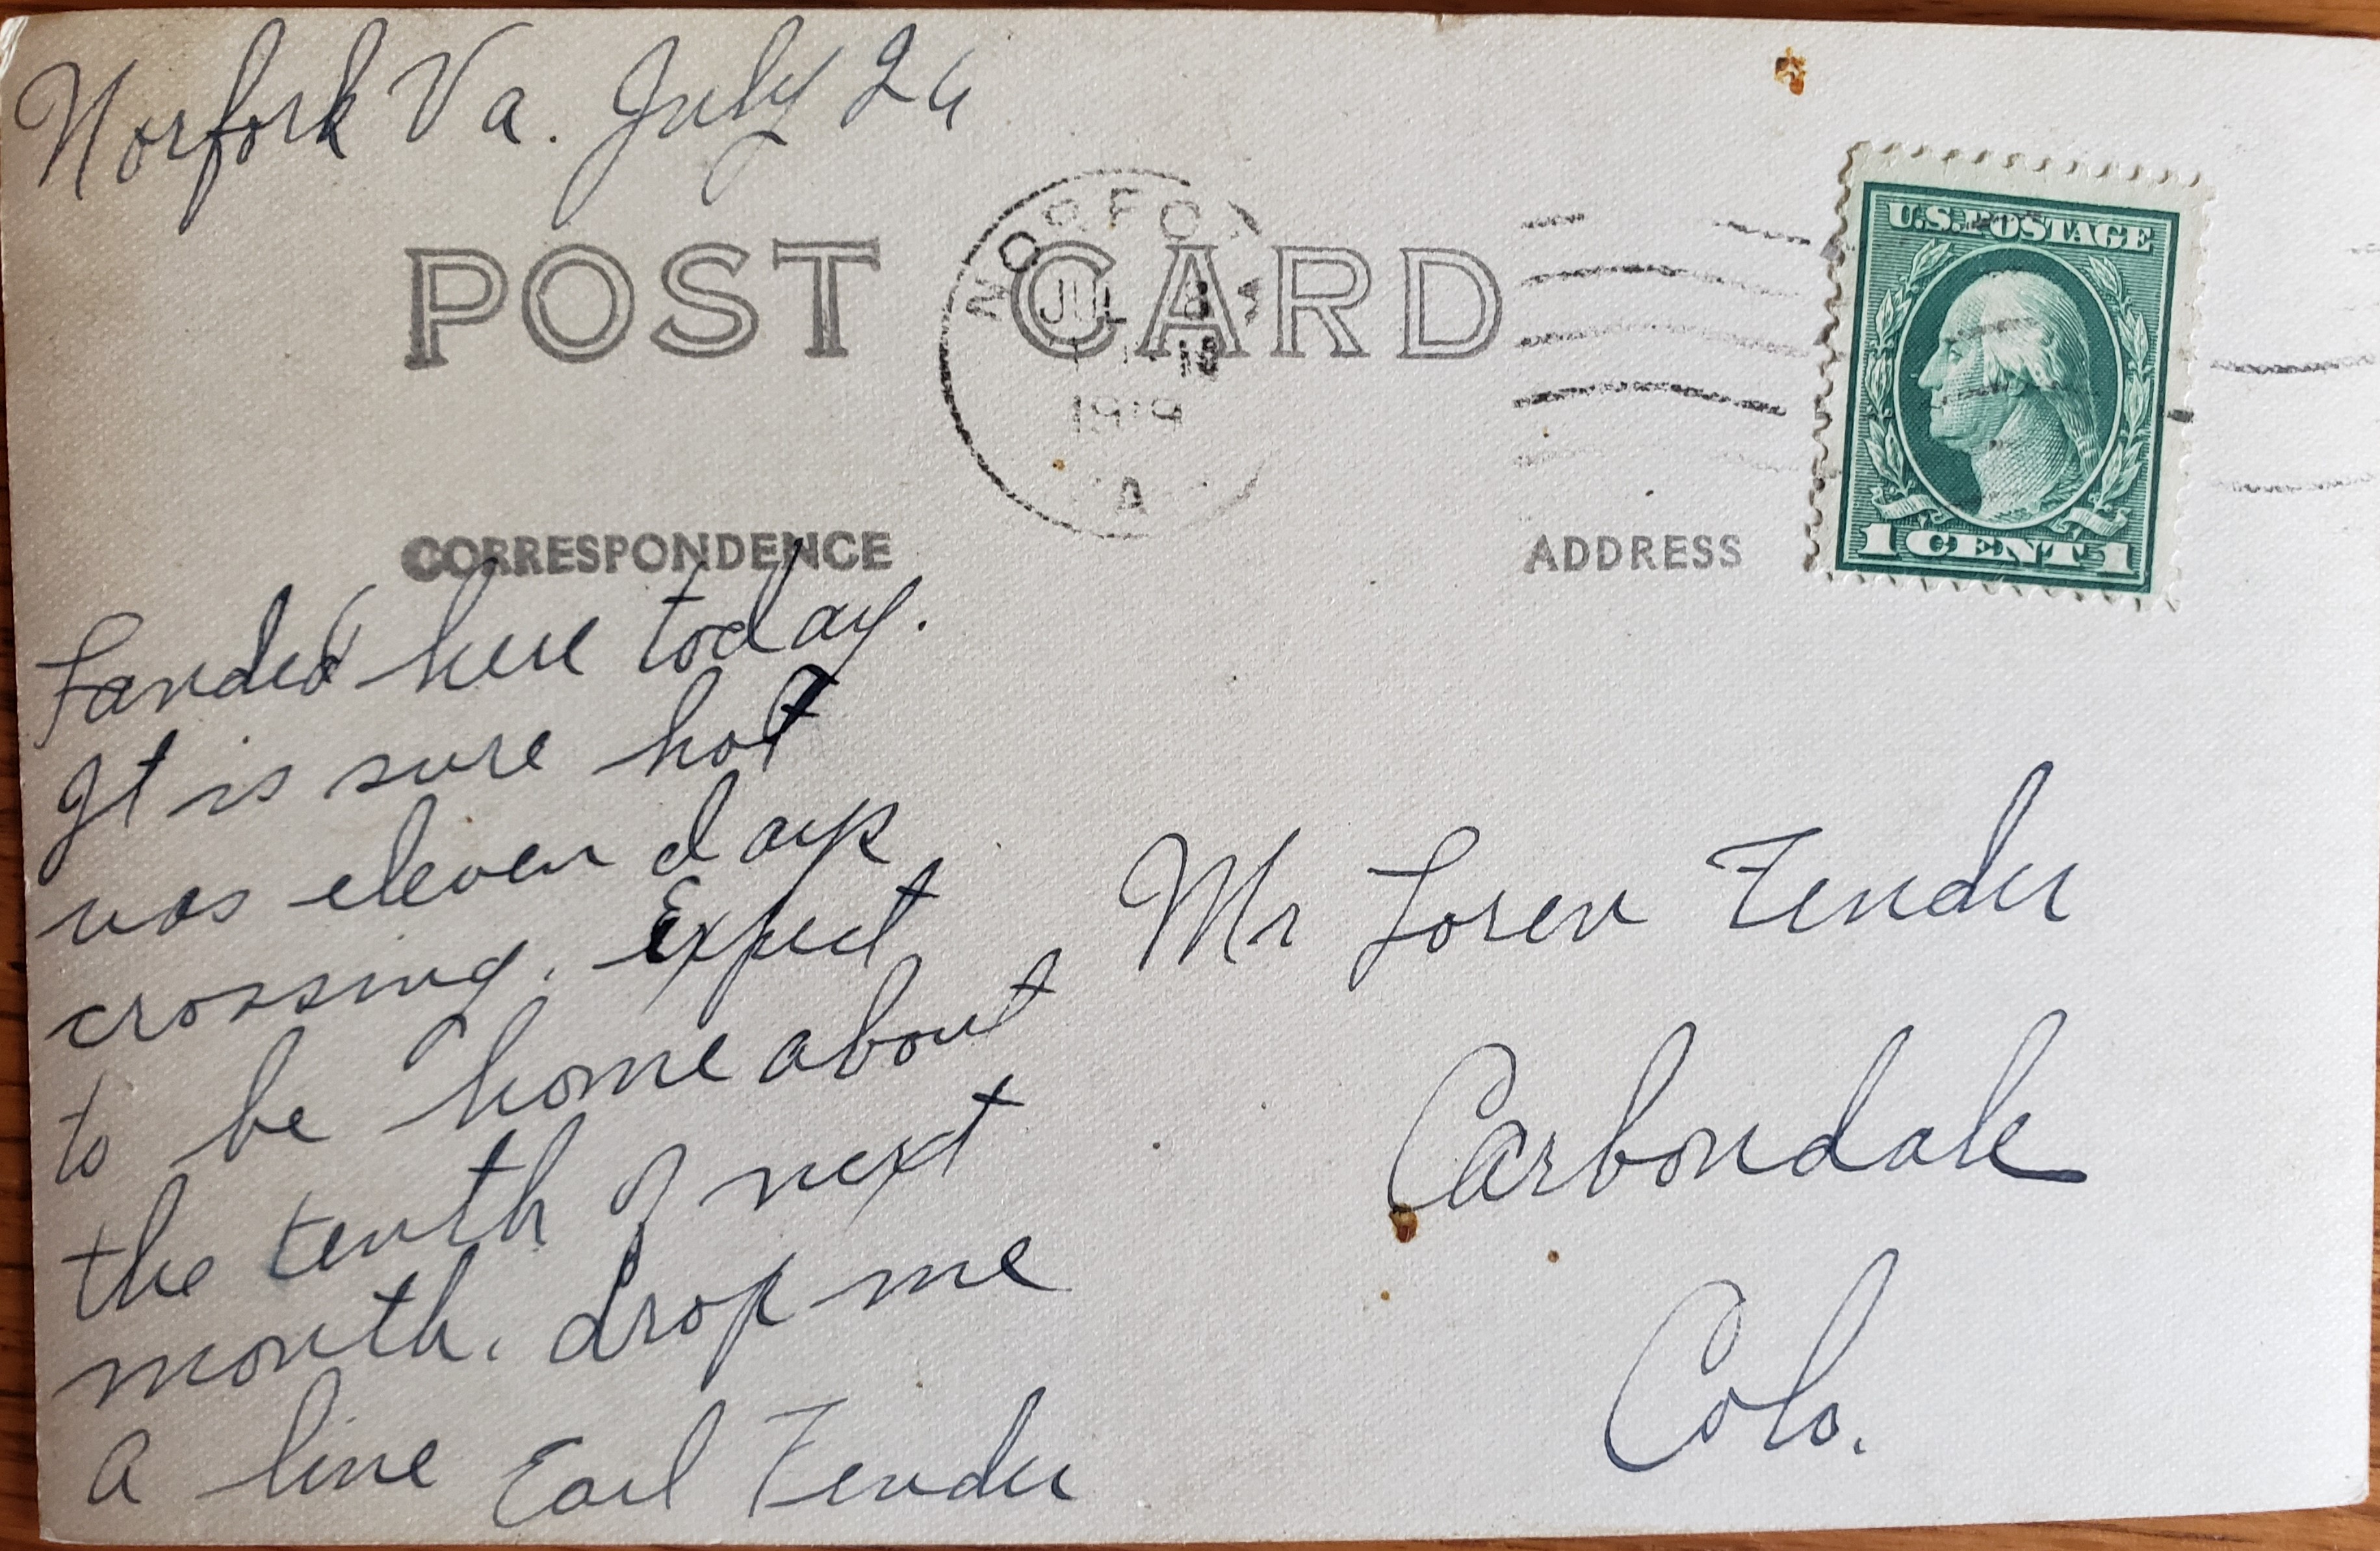 Norfork Va. July 26
POST CARD
NORFO
JUL
1919
A
CORRESPONDENCE
ADDRESS
U.S. POSTAGE
1 CENT 1
Landed here today.
It is sure hot
was eleven days
crossing. Expect
to be home about
the tenth of next
month. drop me
a line Earl Fender
Mr Loren Fender
Carbondale
Colo.